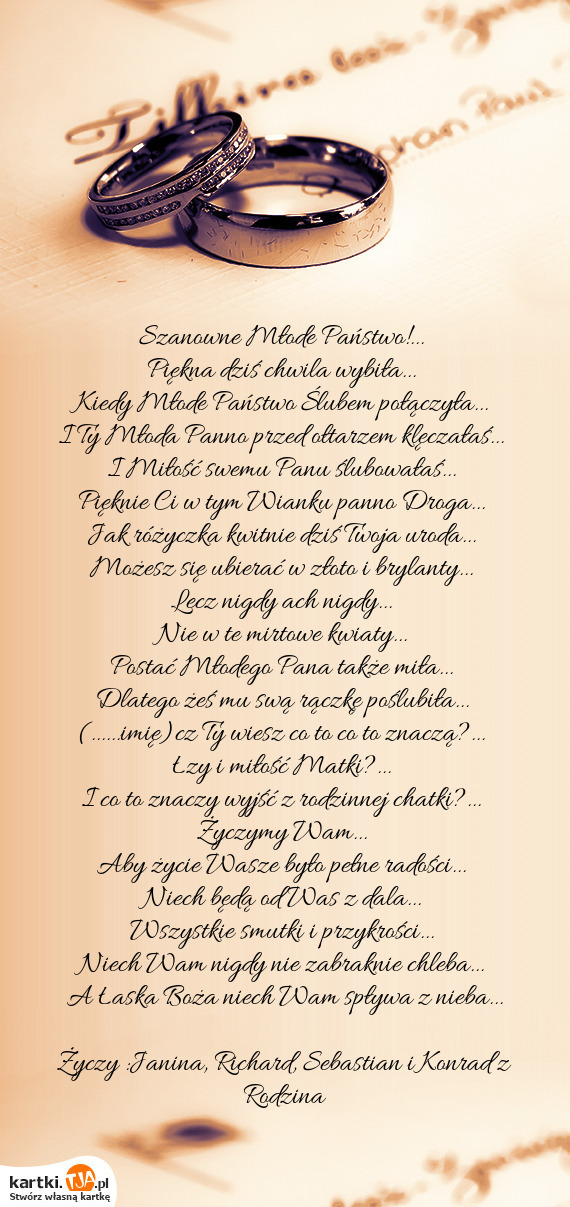 Szanowne Młode Państwo!...
Piękna dziś chwila wybiła...
Kiedy Młode Państwo Ślubem połączyła...
I Ty Młoda Panno przed ołtarzem klęczałaś...
I Miłość swemu Panu ślubowałaś...
Pięknie Ci w tym Wianku panno Droga...
Jak różyczka kwitnie dziś Twoja uroda...
Możesz się ubierać w złoto i brylanty...
Lecz nigdy ach nigdy...
Nie w te mirtowe kwiaty...
Postać Młodego Pana także miła...
Dlatego żeś mu swą rączkę poślubiła...
(......imię) cz Ty wiesz co to co to znaczą?...
Łzy i miłość Matki?...
I co to znaczy wyjść z rodzinnej chatki?...
Życzymy Wam...
Aby życie Wasze było pełne radości...
Niech będą od Was z dala...
Wszystkie smutki i przykrości...
Niech Wam nigdy nie zabraknie chleba...
A Łaska Boża niech Wam spływa z nieba...
Życzy :Janina, Richard, Sebastian i Konrad z
Rodzina
kartki.TJA.pl
Stwórz własną kartkę